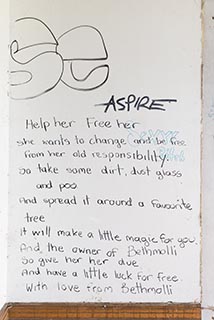 Se
ASPIRE
Help her Free her
She wants to change and be free
from her old responsibility.
So take some dirt, dust glass
and poo
And spread it around a favourite
tree
It will make a little magic for you.
And the owner of Bethmolli
So give her her due
And have a little luck for free
With love from Bethmolli